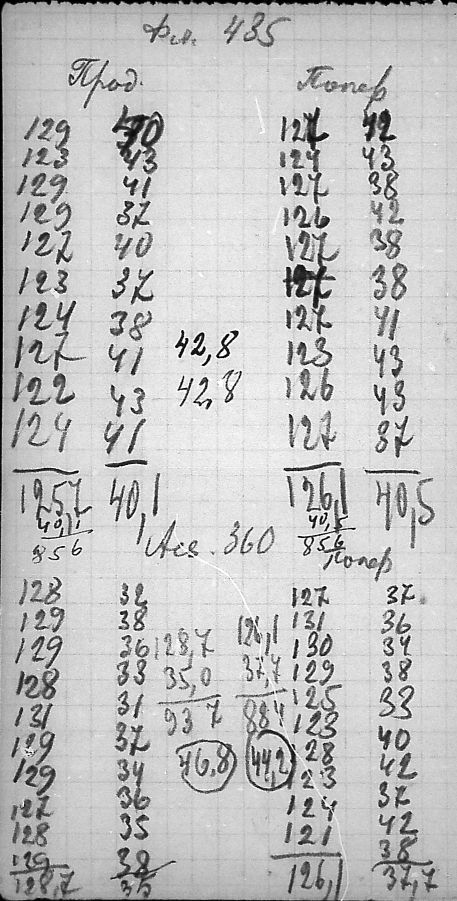 Фл. 435
Прод. Попер
129 40 127 42
123 43 124 43
129 41 127 38
129 37 126 42
127 40 127 38
123 37 127 38
124 38 127 41
127 41 42,8 123 43
122 43 42,8 126 43
124 41 127 37
125,7 40,1 126,1 40,5
40,1 40,5
85 6 85 6
Асс. 360 Попер
128 32 127 37
129 38 131 36
129 36 128,7 126,1 130 34
128 33 35,0 37,7 129 38
131 31 93 7 88 4 125 33
129 37 123 40
129 34 46,8 44,2 128 42
127 36 123 37
128 35 124 42
129 38 121 38
128,7 35 126,1 37,7